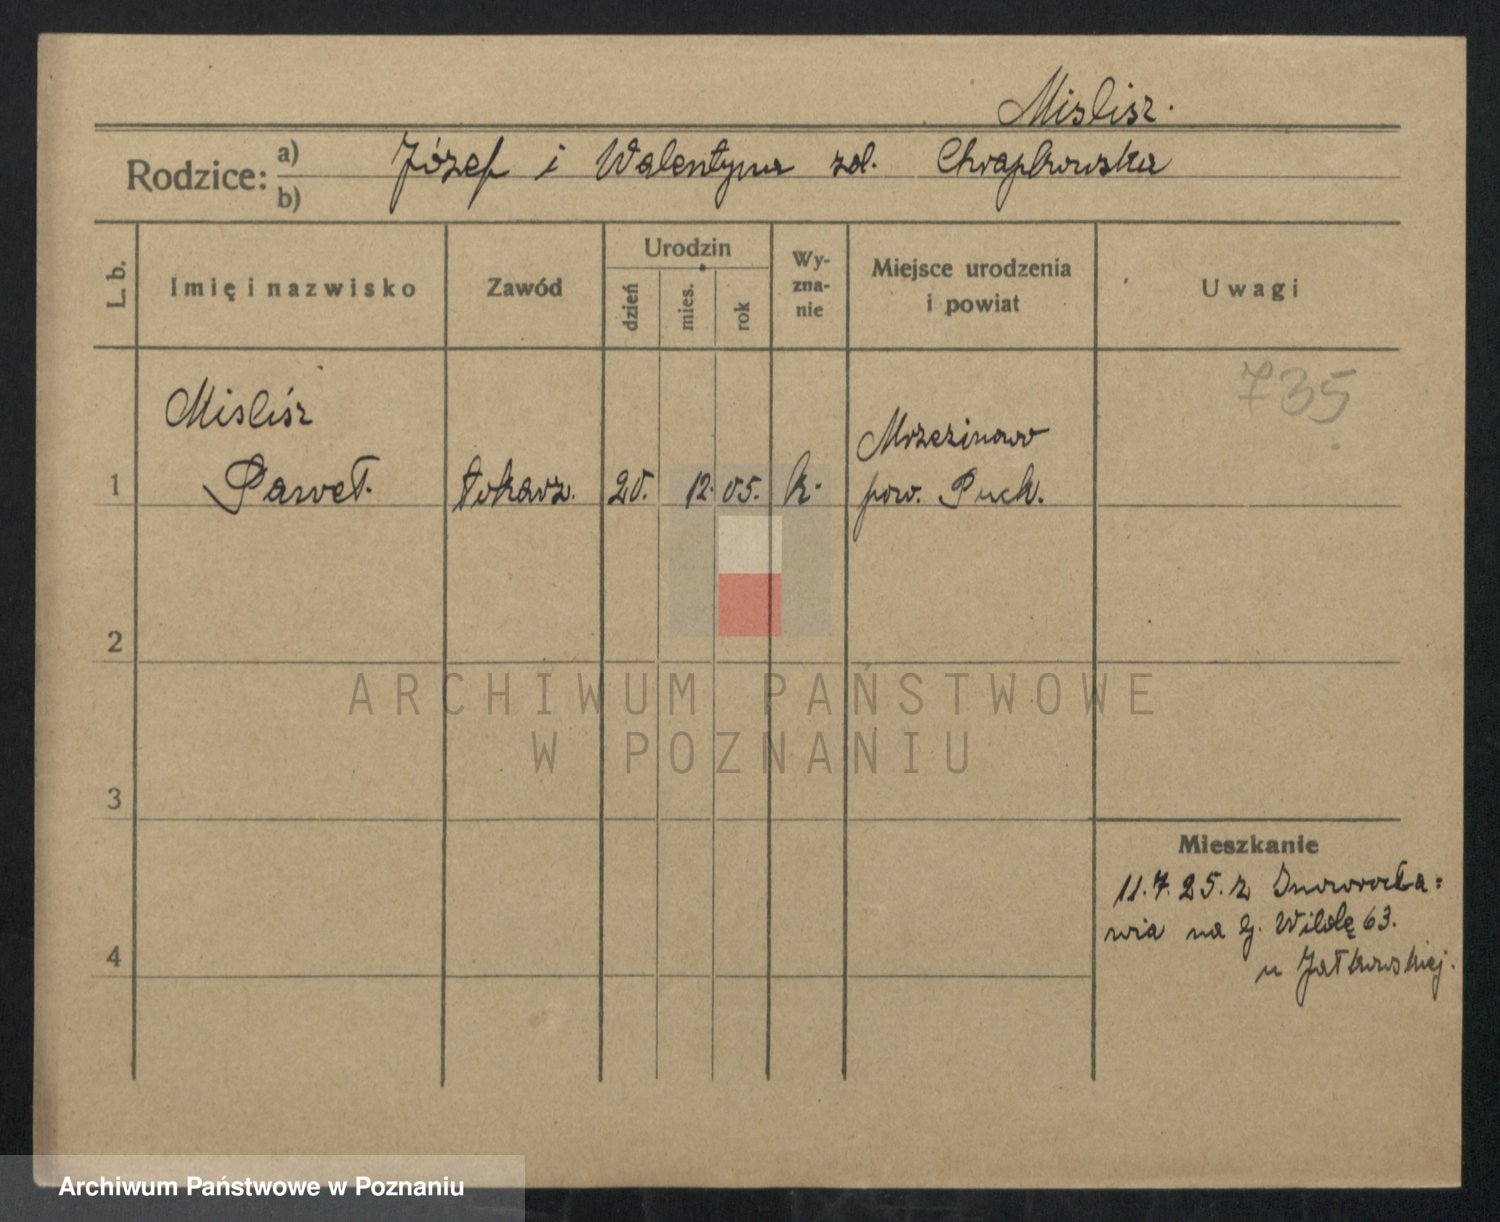 Mislisz.
Rodzice: a) Józef i Walentyna zd. Chrapkowska
b)
L. b.
Imię i nazwisko
Zawód
Urodzin
dzień
mies.
rok
Wy-
zna-
nie
Miejsce urodzenia
i powiat
Uwagi
735
Misliśz
1 Paweł. tokarz. 20. 12. 05. k.
Mrzezinowo
pow. Puck.
2
3
4
Mieszkanie
11.7.25. z Inowrocła=
wia na G. Wildę 63.
u Jatkowskiej.
ARCHIWUM PAŃSTWOWE
W POZNANIU
Archiwum Państwowe w Poznaniu